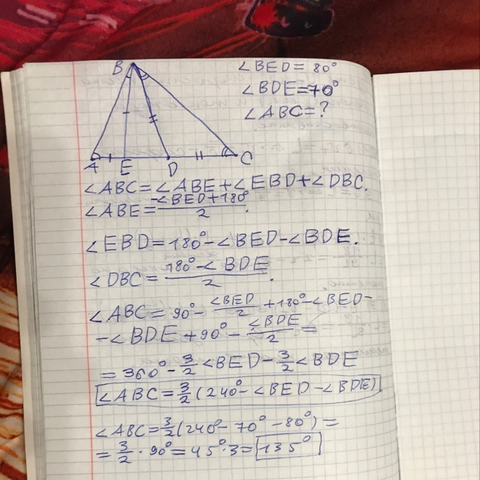 B
∠BED = 80°
∠BDE = 70°
∠ABC = ?
A E D C
∠ABC = ∠ABE + ∠EBD + ∠DBC.
∠ABE = (-∠BED + 180°)/2.
∠EBD = 180° - ∠BED - ∠BDE.
∠DBC = (180° - ∠BDE)/2.
∠ABC = 90° - ∠BED/2 + 180° - ∠BED -
- ∠BDE + 90° - ∠BDE/2 =
= 360° - 3/2 ∠BED - 3/2 ∠BDE
∠ABC = 3/2 (240° - ∠BED - ∠BDE)
∠ABC = 3/2 (240° - 70° - 80°) =
= 3/2 · 90° = 45° · 3 = 135°